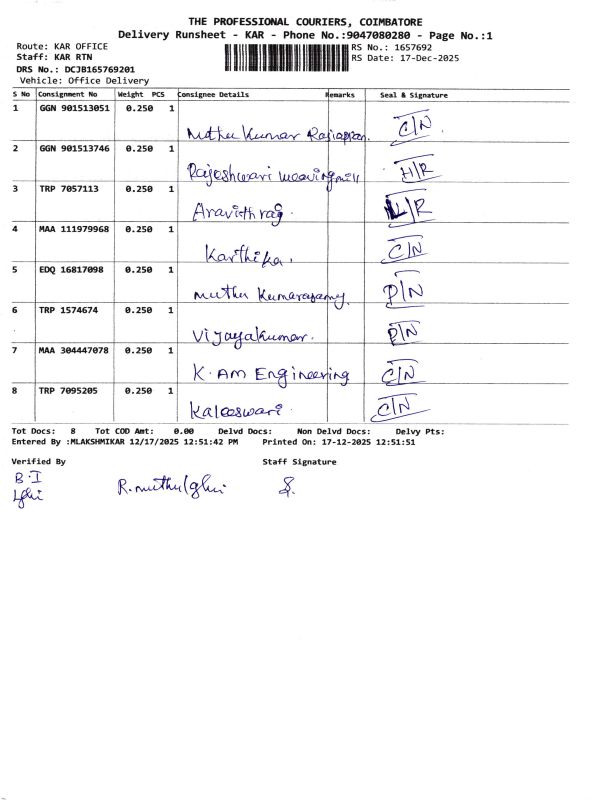 THE PROFESSIONAL COURIERS, COIMBATORE
Delivery Runsheet - KAR - Phone No.:9047080280 - Page No.:1
Route: KAR OFFICE RS No.: 1657692
Staff: KAR RTN RS Date: 17-Dec-2025
DRS No.: DCJB165769201
Vehicle: Office Delivery
S No Consignment No Weight PCS Consignee Details Remarks Seal & Signature
1 GGN 901513051 0.250 1
Muthu Kumar Rajiappan. C/N
2 GGN 901513746 0.250 1
Rajeshwari weaving mill H/R
3 TRP 7057113 0.250 1
Aravithraj. L/R
4 MAA 111979968 0.250 1
Karthika. C/N
5 EDQ 16817098 0.250 1
Muthu Kumarasamy. P/N
6 TRP 1574674 0.250 1
Vijayakumar. P/N
7 MAA 304447078 0.250 1
K. Am Engineering C/N
8 TRP 7095205 0.250 1
Kaleeswari C/N
Tot Docs: 8 Tot COD Amt: 0.00 Delvd Docs: Non Delvd Docs: Delvy Pts:
Entered By :MLAKSHMIKAR 12/17/2025 12:51:42 PM Printed On: 17-12-2025 12:51:51
Verified By Staff Signature
B.I